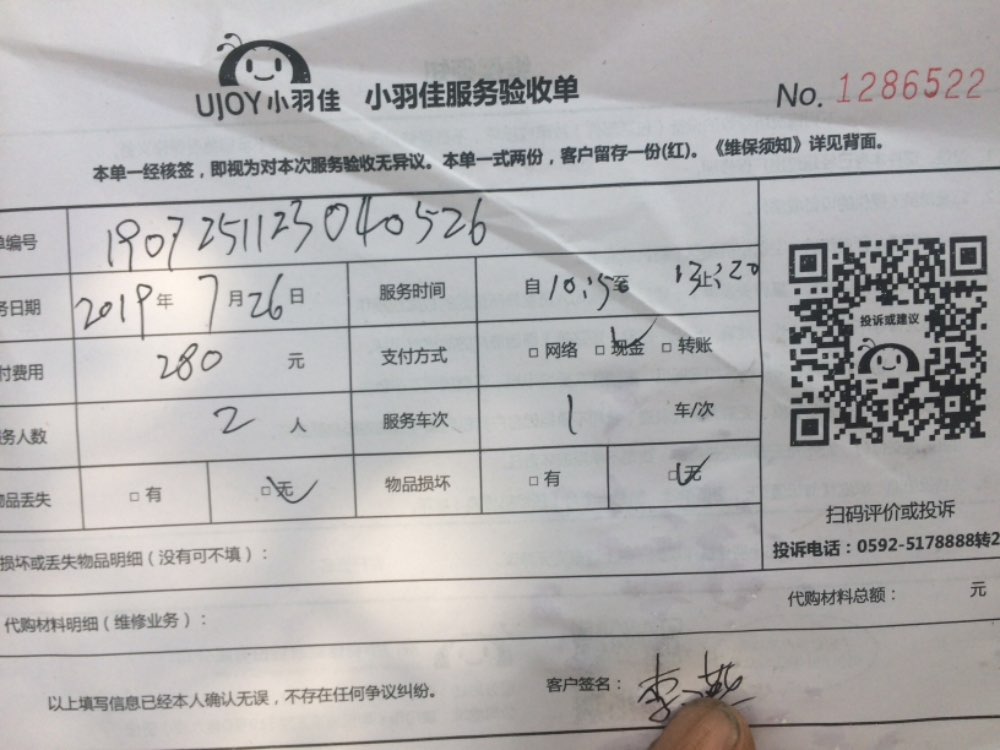 UJOY小羽佳 小羽佳服务验收单 No. 1286522
本单一经核签，即视为对本次服务验收无异议。本单一式两份，客户留存一份(红)。《维保须知》详见背面。
单编号 190725112304 0526
务日期 2019年 7月26日 服务时间 自10:15至 13:20止
付费用 280 元 支付方式 □网络 □现金 □转账
务人数 2 人 服务车次 1 车/次
物品丢失 □有 □无 物品损坏 □有 □无
投诉或建议
扫码评价或投诉
投诉电话：0592-5178888转2
损坏或丢失物品明细（没有可不填）：
代购材料明细（维修业务）： 代购材料总额： 元
以上填写信息已经本人确认无误，不存在任何争议纠纷。 客户签名：李